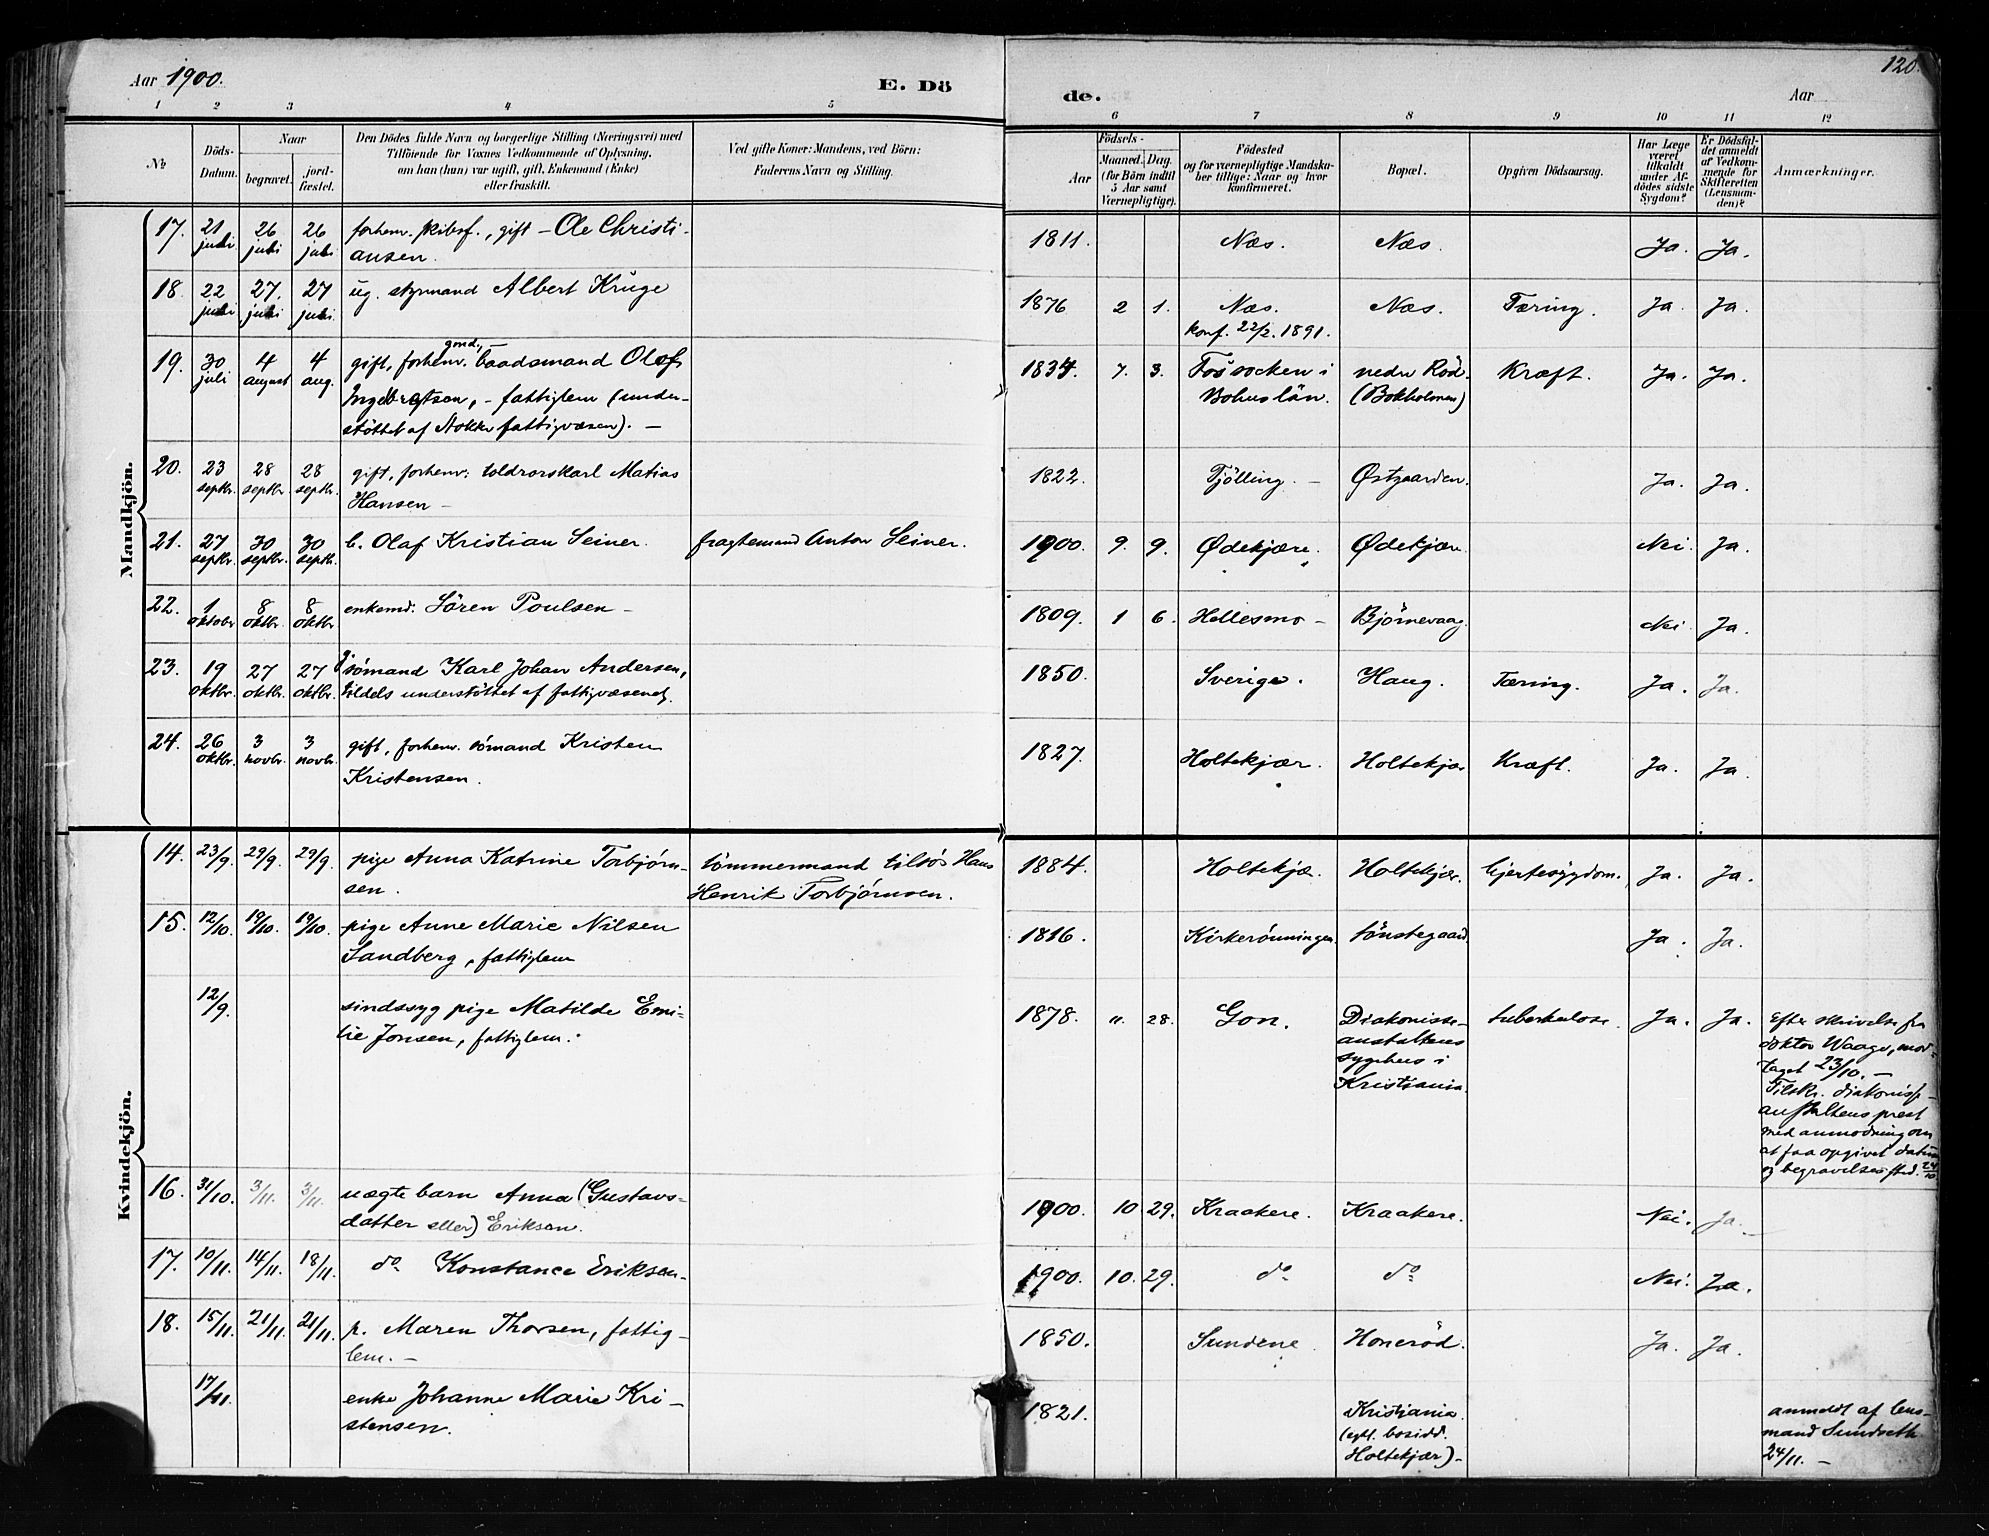 Aar 1900.
E. Dö
de.
Aar
120.
1 2 3 4 5 6 7 8 9 10 11 12
№
Döds-Datum.
Naar
begravet.
jordfæstet.
Den Dödes fulde Navn og borgerlige Stilling (Næringsvei) med
Tilföiende for Voxnes Vedkommende af Oplysning,
om han (hun) var ugift, gift, Enkemand (Enke)
eller fraskilt.
Ved gifte Koner: Mandens, ved Börn:
Faderens Navn og Stilling.
Födsels-
Aar
Maaned. Dag.
(for Börn indtil
5 Aar samt
Værnepligtige).
Födested
og for værnepligtige Mandska-
ber tillige: Naar og hvor
konfirmeret.
Bopæl.
Opgiven Dödsaarsag.
Har Læge
været
tilkaldt
under Af-
dödes sidste
Sygdom?
Er Dödsfal-
det anmeldt
af Vedkom-
mende for
Skifteretten
(Lensman-
den)?
Anmærkninger.
Mandkjön.
17. 21 juli 26 juli 26 juli forhenv. skibsf., gift - Ole Christi-
ansen. 1811. Næs. Næs. Ja. Ja.
18. 22 juli 27. juli 27 juli. ug. styrmand Albert Kruge 1876 2 1. Næs. Næs. Tæring. Ja. Ja.
konf. 22/2. 1891.
19. 30 juli 4 august 4 aug. gift, forhenv. baadsmand Olof
Ingebretson, - fattiglem (under-
støttet af fattigvæsen). -
1834. 7. 3. i Bohuslän. nedre Röd. (Bokholmen) Kræft. Ja. Ja.
20. 23 septbr. 28 septbr. 28 septbr. gift, forhenv: toldrorskarl Matias
Hansen - 1822. Tjölling. - Østgaarden. Ja. Ja.
21. 27 septbr. 30 septbr. 30 septbr. b. Olaf Kristian Seiner. fragtemand Anton Seiner. 1900. 9. 9. Ødekjære. Ødekjære Nei. Ja.
22. 1 oktober 8 oktbr. 8 oktbr. enkemd: Sören Poulsen - 1809. 1 6. Hellesmo - Bjørnevaag. Nei. Ja.
23. 19 oktbr. 27 oktbr. 27 oktbr. sømand Karl Johan Andersen,
tildels understøttet af fattigvæsenet. 1850. Sverige. Haug. Tæring. Ja. Ja.
24. 26 oktbr. 3 novbr. 3 novbr. gift, forhenv. sømand Kristen
Kristensen. 1827. Holtekjær. Holtekjær Kræft. Ja. Ja.
Kvindekjön.
14. 23/9. 29/9. 29/9. pige Anna Katrine Torbjørn-
sen. tømmermand tilsøs Hans
Henrik Torbjørnsen. 1884. Holtekjæ. Holtekjær. hjertesygdom. Ja. Ja.
15. 12/10. 19/10. 19/10. pige Anne Marie Nilsen
Sandberg, fattiglem 1816. Kirkerönningen. Sönstegaard. Ja. Ja.
12/9. sindssyg pige Matilde Emi-
lie Jonsen, fattiglem. 1878. 11. 28. Gon. Diakonisse-
anstaltens
sygehus i
Kristiania. tuberkulose. Ja. Ja. Efter skrivelse fra
doktor Waage, mod-
taget 23/10. -
Tilskr. diakonisse-
anstaltens prest
med anmodning om
at faa opgivet datum
og begravelsessted. 24/10
16. 31/10. 3/11. 3/11. uægte barn Anna (Gustavs-
datter eller) Eriksen. 1900. 10 29. Kraakere. Kraakere. Nei. Ja.
17. 10/11. 14/11. 18/11. do Konstance Eriksen. 1900. 10. 29. do do Nei. Ja.
18. 15/11. 21/11. 21/11. p. Maren Thorsen, fattig-
lem. - 1850. Sundene Honerød. Ja. Ja.
17/11. enke Johanne Marie Kri-
stensen. 1821. Kristiania.
(egtl. bosidd.
Holtekjær) - anmeldt af lens-
mand Sundseth
24/11. -